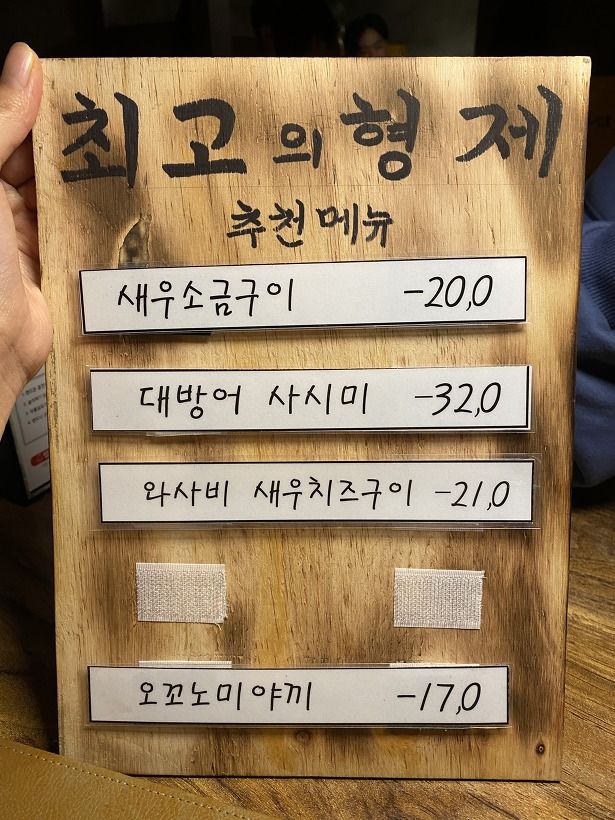 최고의 형제
추천메뉴
새우소금구이 -20,0
대방어 사시미 -32,0
와사비 새우치즈구이 -21,0
오꼬노미야끼 -17,0